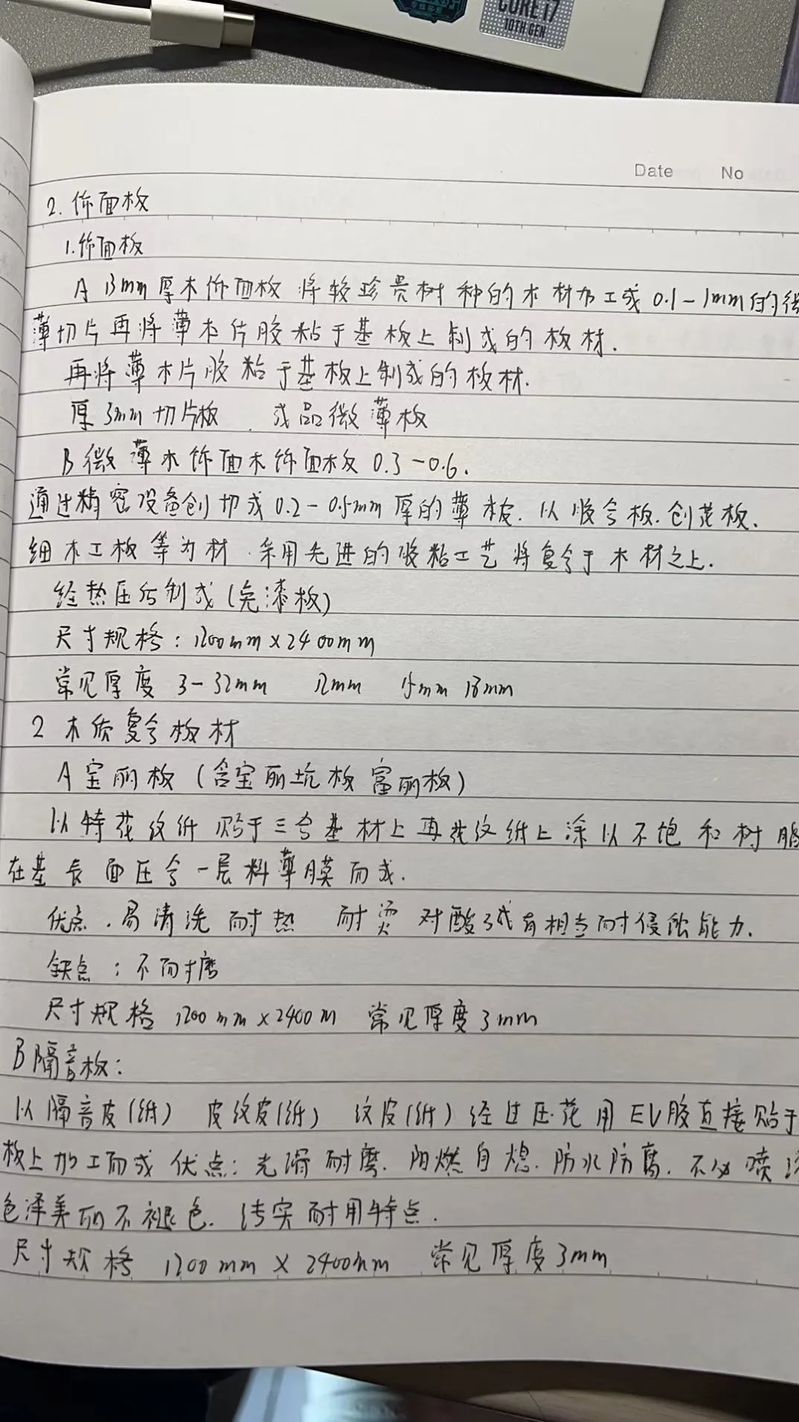 CORE i7
10TH GEN
Date No
2. 饰面板
1.饰面板
A 13mm厚木饰面板 将较珍贵树种的木材加工成 0.1-1mm的微
薄切片再将薄木片胶粘于基板上制成的板材.
再将薄木片胶粘于基板上制成的板材.
厚3mm切片板 . 成品微薄板
B 微薄木饰面木饰面板 0.3-0.6.
通过精密设备刨切成0.2-0.5mm厚的薄板. 以胶合板.刨花板、
细木工板等为材.采用先进的胶粘工艺将复合于木材之上.
经热压后制成(免漆板)
尺寸规格:1200mm×2400mm
常见厚度 3-32mm 12mm 15mm 18mm
2 木质复合板材
A宝丽板(含宝丽坑板富丽板)
以特花纹纸贴于三合基材上再在纹纸上涂以不饱和树脂
在基表面压合一层料薄膜而成.
优点.易清洗 耐热 耐烫 对酸碱有相当耐侵蚀能力.
缺点:不耐磨
尺寸规格 1200mm×2400m 常见厚度3mm
B隔音板:
以隔音皮(纸) 皮纹皮(纸) 纹皮(纸)经过压花用EV胶直接贴于
板上加工而成 优点:光滑耐磨.阻燃自熄.防水防腐.不必喷
色泽美丽不褪色.结实耐用特点.
尺寸规格 1200mm×2400mm 常见厚度3mm